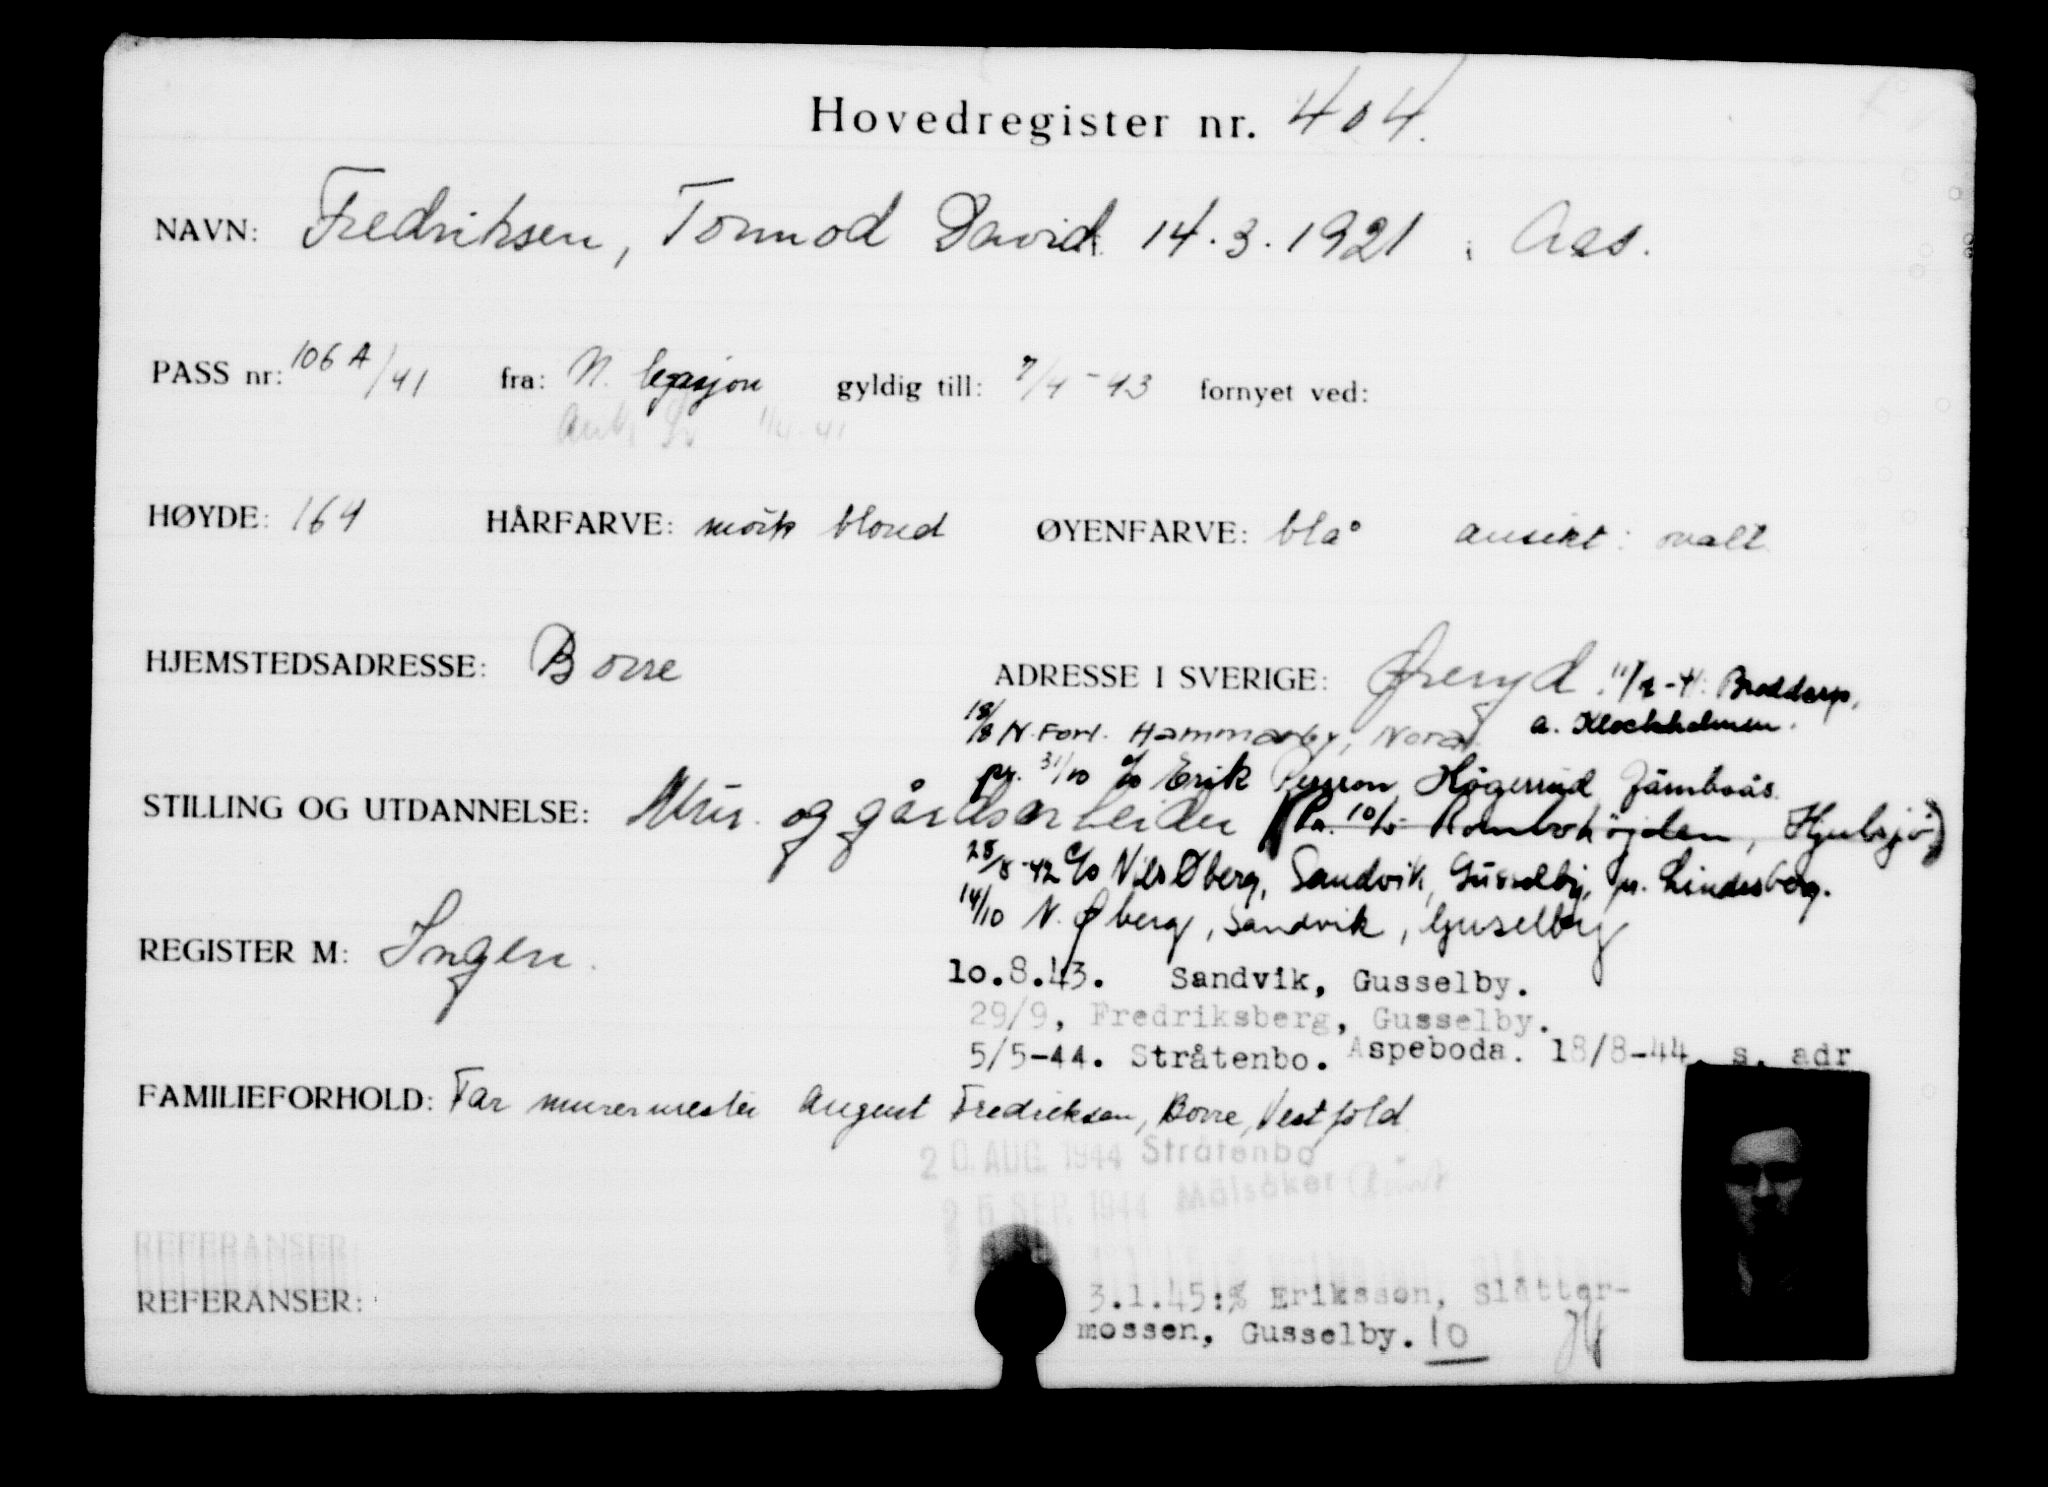 Hovedregister nr. 404.
NAVN: Fredriksen, Tormod David. 14.3.1921 i Aas.
PASS nr: 106 A/41 fra: N. legasjon gyldig till: 7/4-43 fornyet ved:
HØYDE: 164 HÅRFARVE: mörk blond ØYENFARVE: blå ansikt: ovalt
HJEMSTEDSADRESSE: Borre ADRESSE I SVERIGE: Øreryd. Broddarp,
a. Klockholmen.
18/8 N. Forl. Hammarby, Nora.
pr. 31/10 c/o Erik Persson Högerrud Järnboås.
STILLING OG UTDANNELSE: Mur. og gårdsarbeider (Pr. 10/5 Rombohöjden, Hjulsjö)
28/8-42 c/o Nils Øberg, Sandvik, Gusselby, pr. Lindesberg.
14/10 N. Øberg, Sandvik, Guselby
REGISTER M: Ingen.
10.8.43. Sandvik, Gusselby.
29/9, Fredriksberg, Gusselby.
5/5-44. Stråtenbo. Aspeboda. 18/8-44. s. adr
FAMILIEFORHOLD: Far murermester August Fredriksen, Borre, Vestfold
20. AUG. 1944 Stråtenbo
25 SEP. 1944 Mälsåker
REFERANSER
REFERANSER:
3.1.45: % Eriksson, Slåtter-
mossen, Gusselby. 10